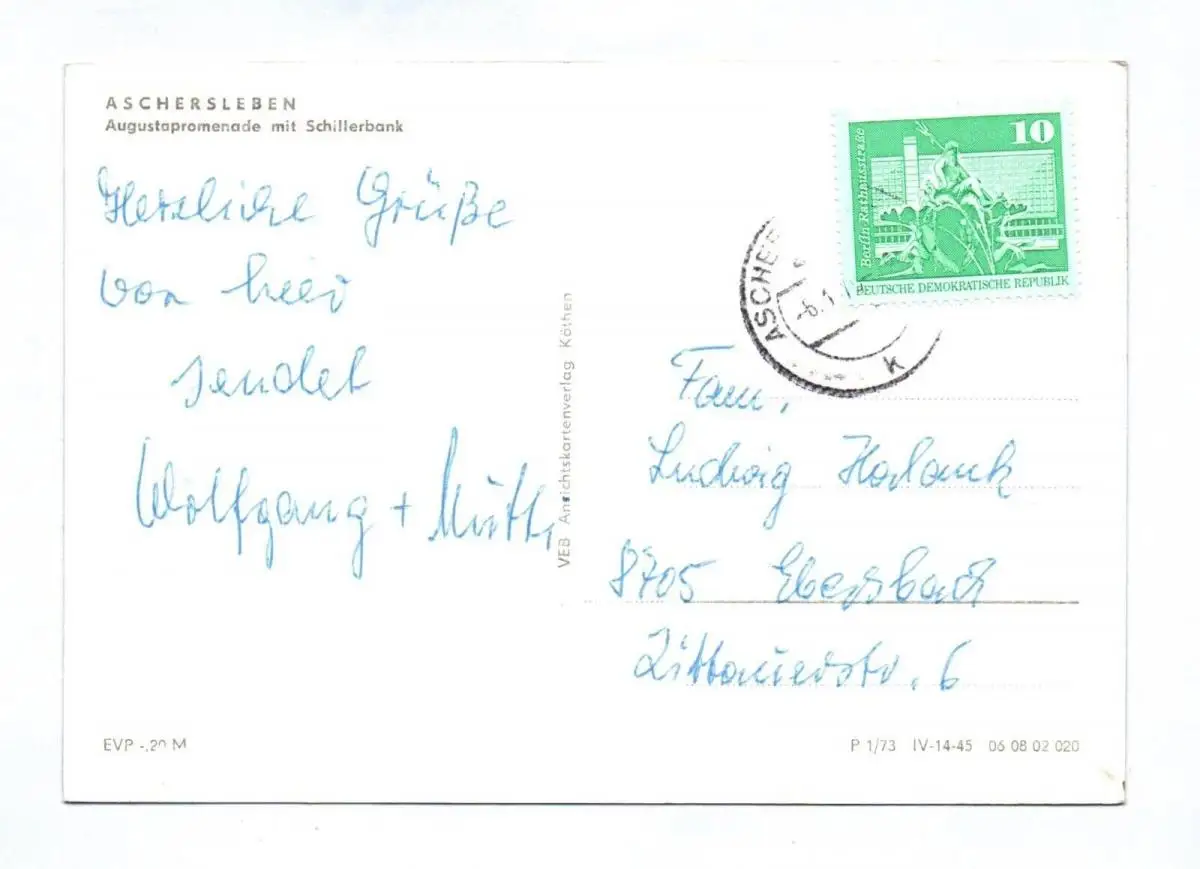 ASCHERSLEBEN
Augustapromenade mit Schillerbank
Herzliche Grüße
von hier
sendet
Wolfgang + Mutti
VEB Ansichtskartenverlag Köthen
10
Berlin-Rathausstraße
DEUTSCHE DEMOKRATISCHE REPUBLIK
ASCHE
-6.1
k
Fam.
Ludwig
8705 Ebersbach
Zittauerstr. 6
EVP -,20 M
P 1/73 IV-14-45 06 08 02 020